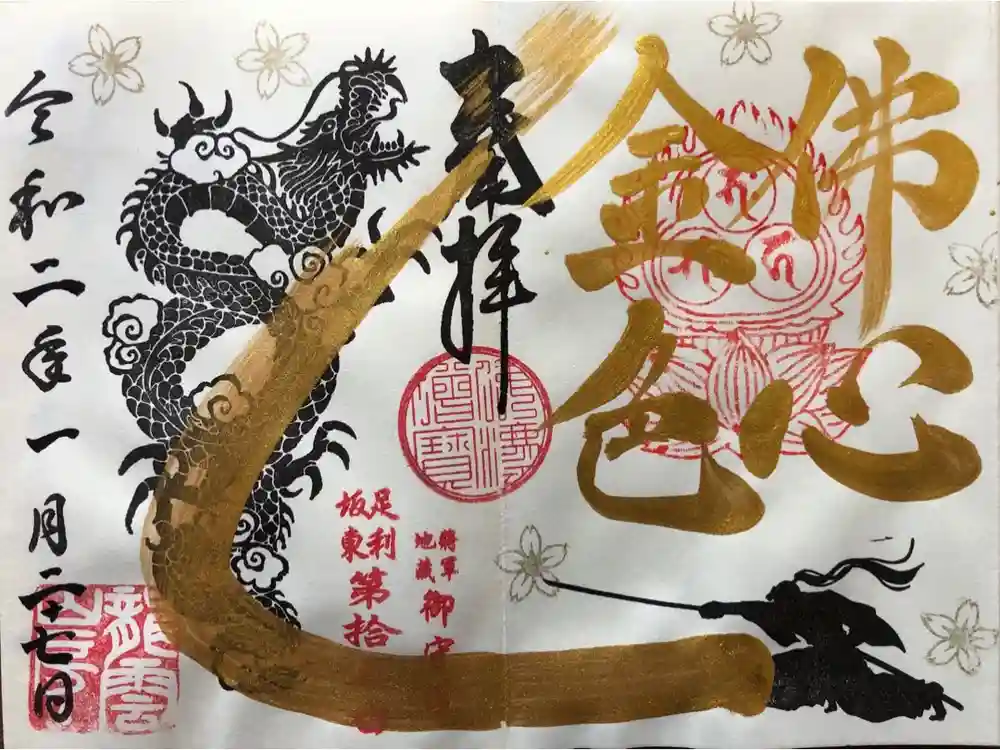 佛心
金色
奉拝
将軍
地蔵
御守
足利
坂東
第拾
令和二年一月二十七日
龍雲